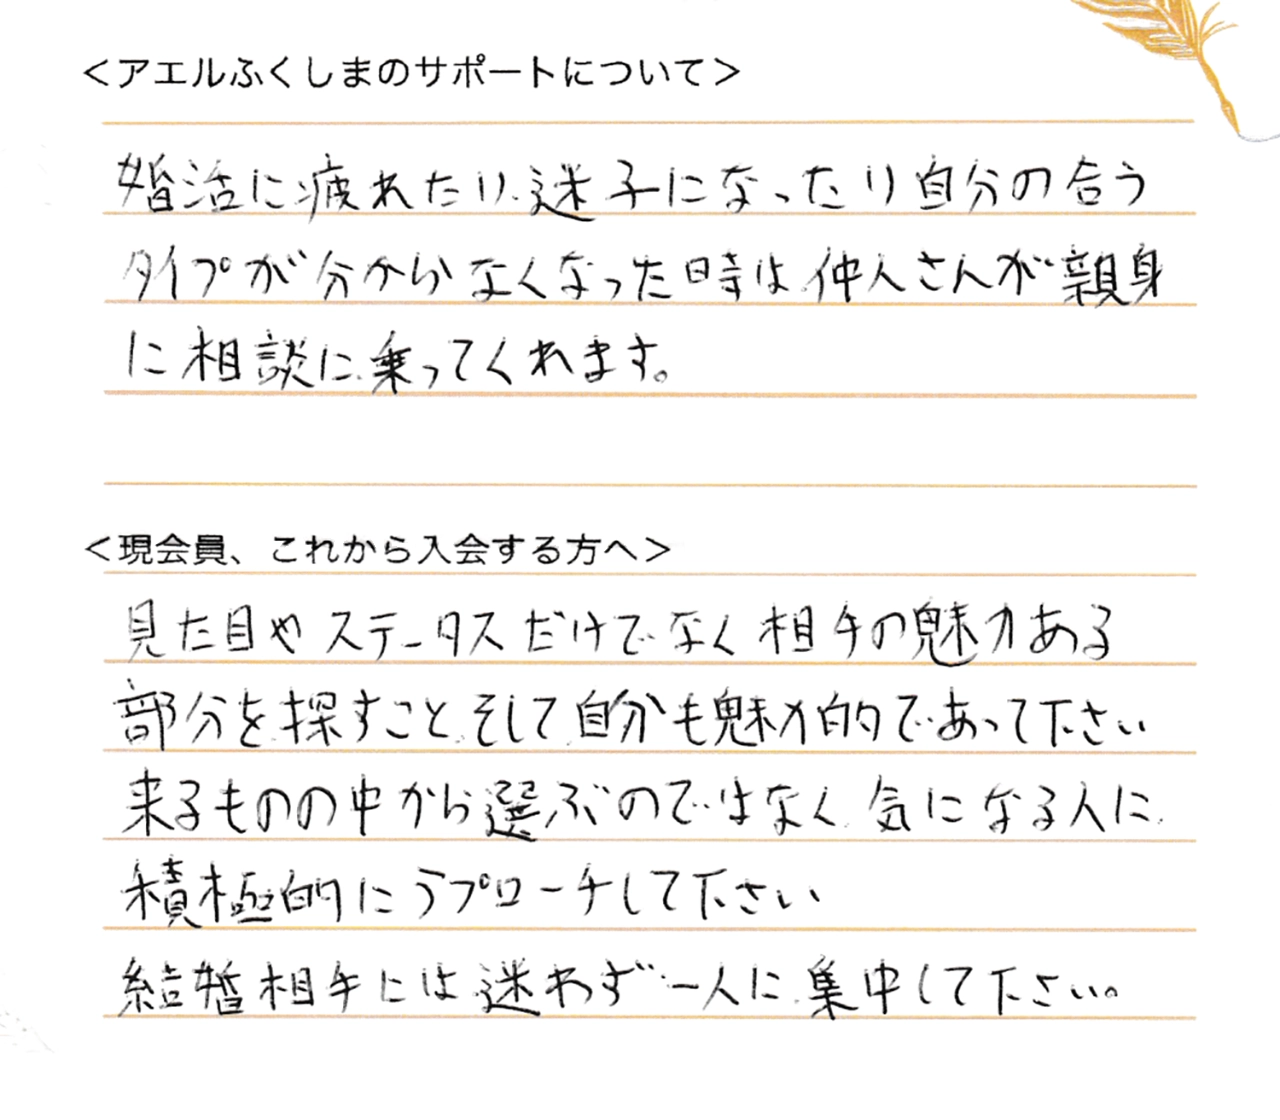 ＜アエルふくしまのサポートについて＞
婚活に疲れたり、迷子になったり自分の合う
タイプが分からなくなった時は仲人さんが親身
に相談に乗ってくれます。
＜現会員、これから入会する方へ＞
見た目やステータスだけでなく相手の魅力ある
部分を探すこと、そして自分も魅力的であって下さい
来るものの中から選ぶのではなく、気になる人に
積極的にアプローチして下さい
結婚相手には迷わず一人に集中して下さい。